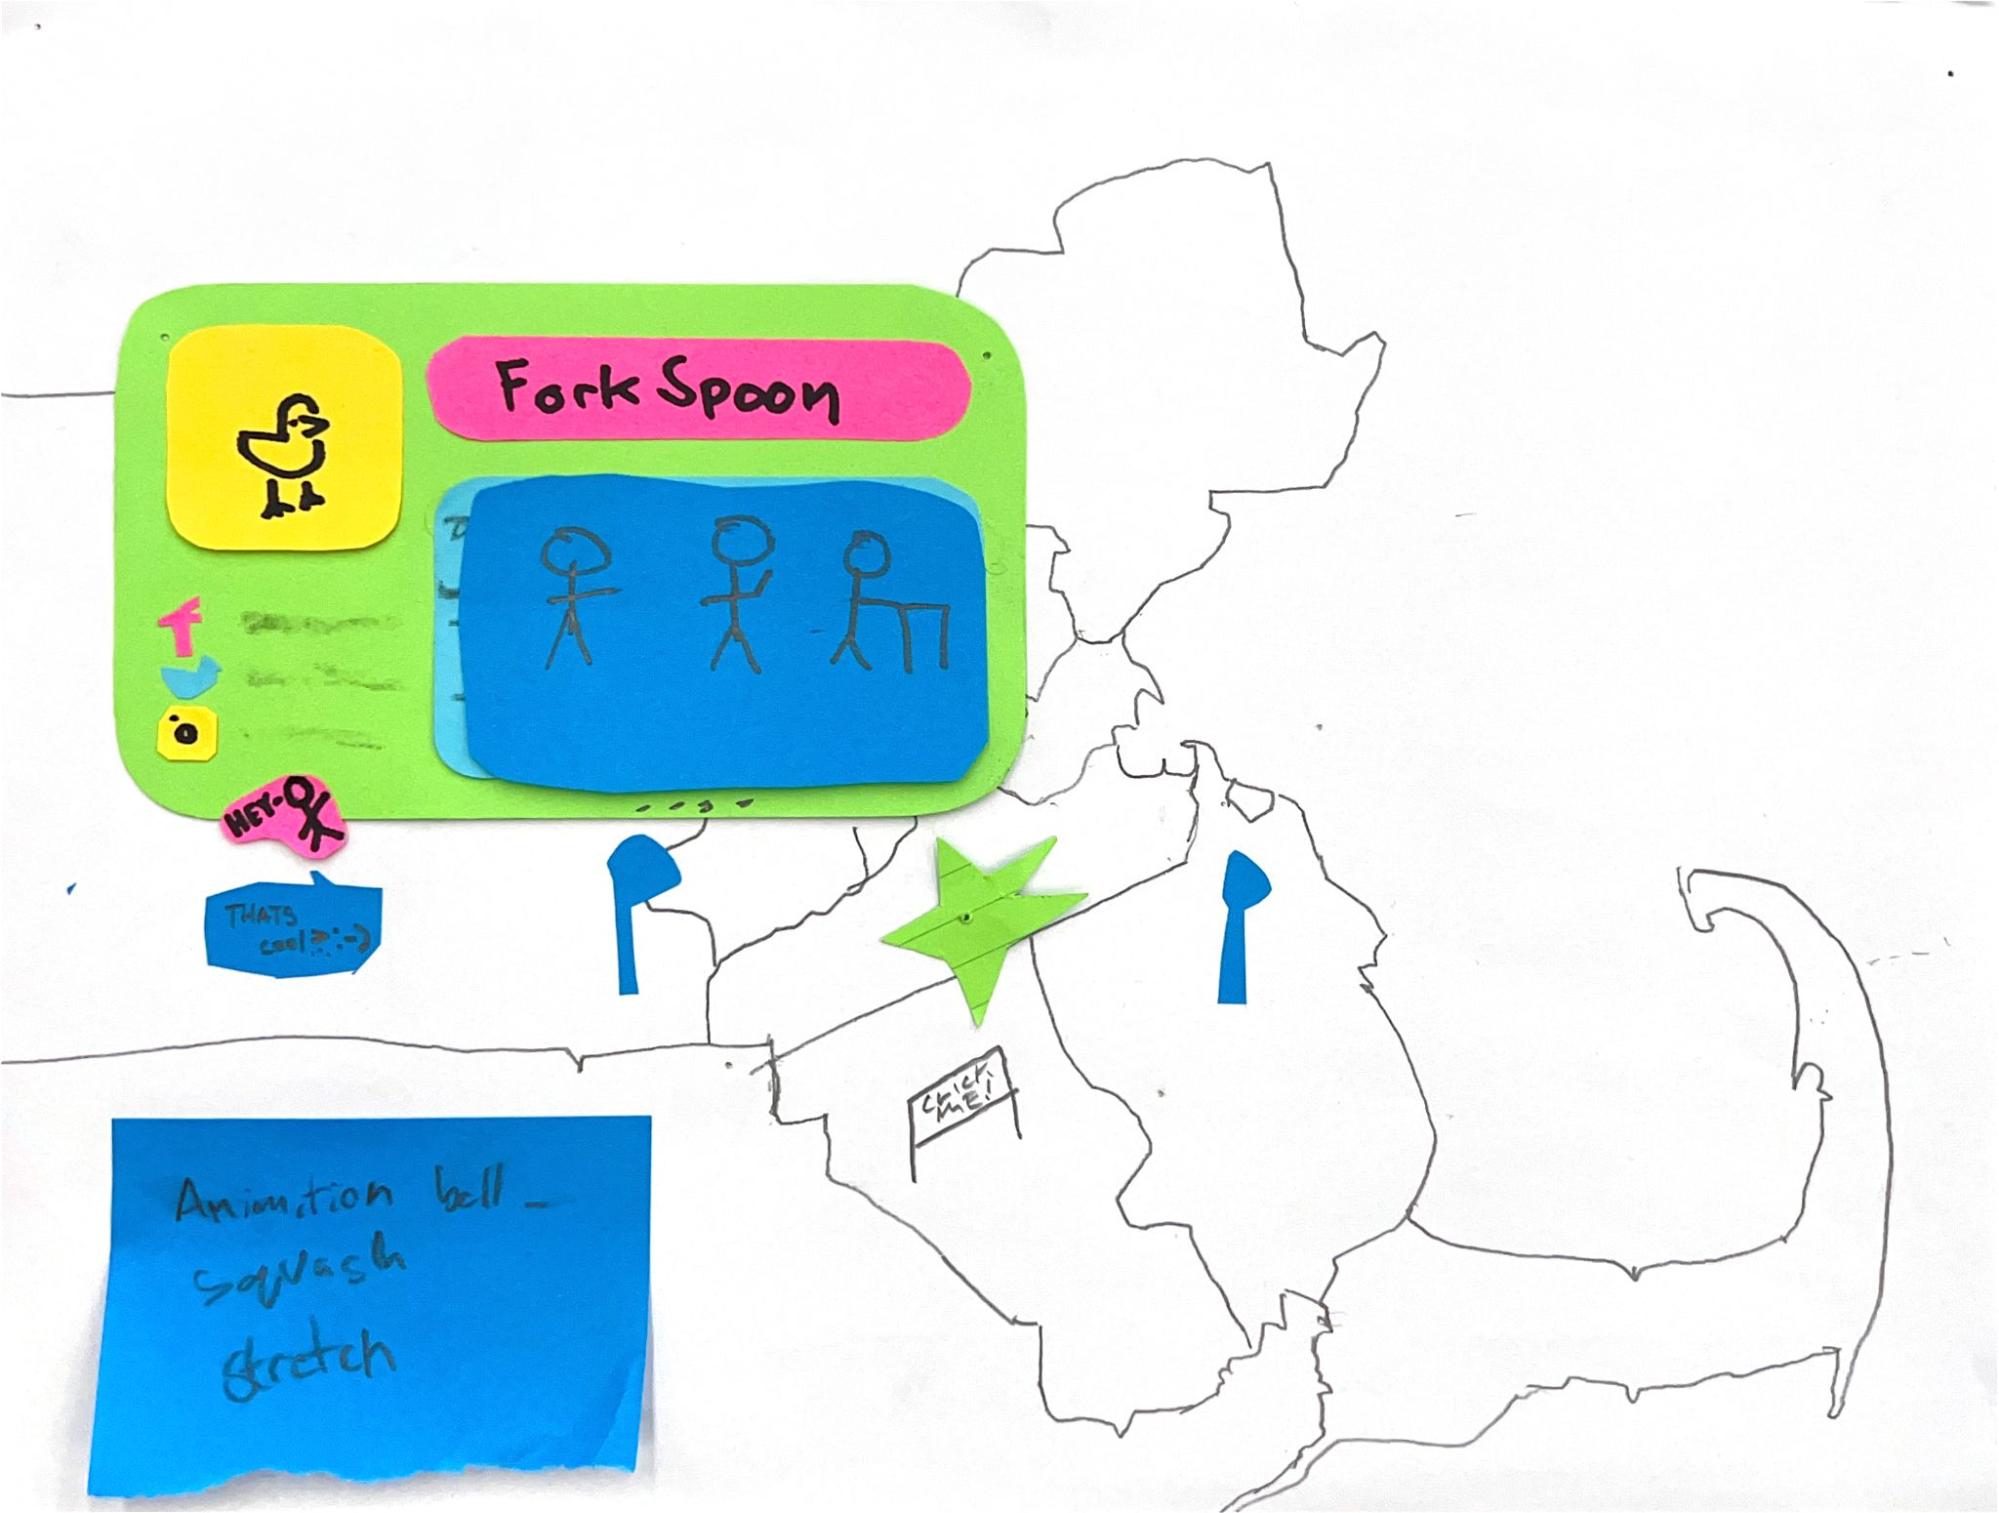 Fork Spoon
HEY-
THATS
cool
CLICK
ME!
Animation ball -
squash
stretch